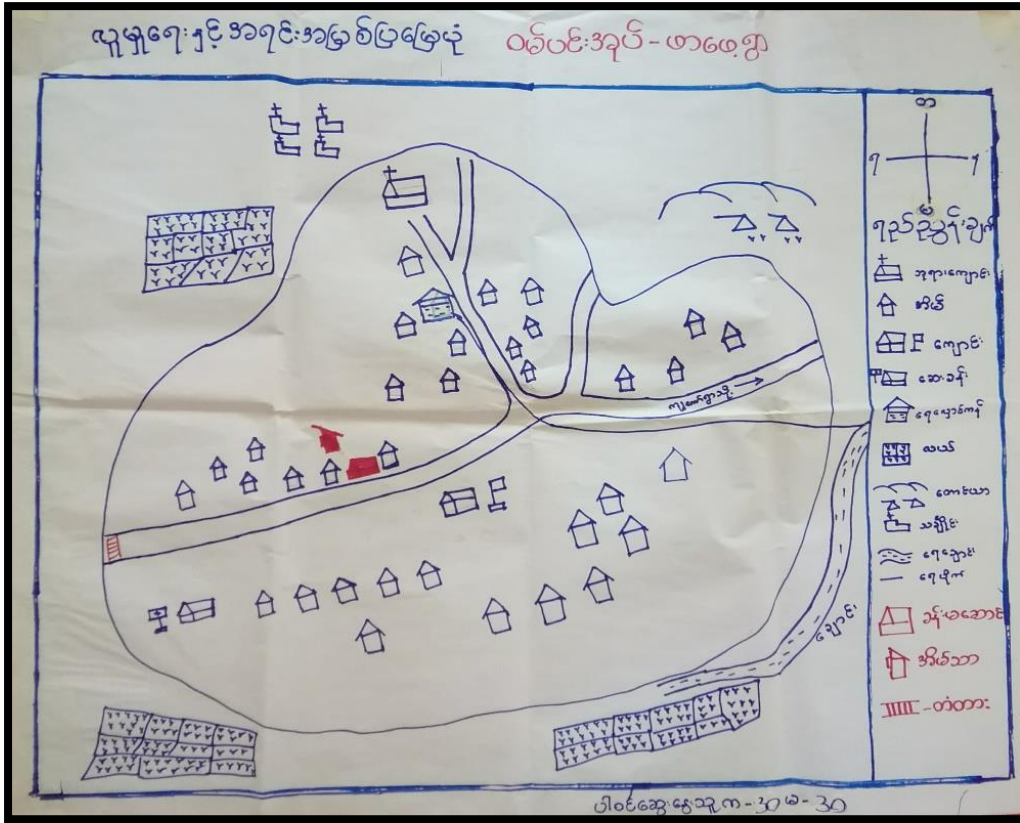 လူမှုရေးနှင့်အရင်းအမြစ်ပြမြေပုံ ဝမ်ပင်းအုပ်-ဖာဖေ့ရွာ
တ
ရ
မ
ရည်ညွှန်းချက်
ဘုရားကျောင်း
အိမ်
ကျောင်း
ဆေးခန်း
ရေလှောင်ကန်
လယ်
တောင်ယာ
သင်္ချိုင်း
ရေချောင်း
ရေပိုက်
ခန်းမဆောင်
အိမ်သာ
-တံတား
ချောင်း
ပါဝင်ဆွေးနွေးသူ က-30 မ-30